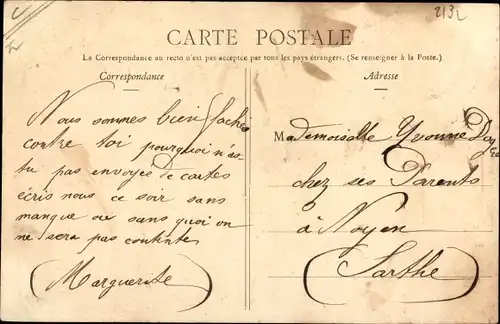 213L
CARTE POSTALE
La Correspondance au recto n'est pas acceptée par tous les pays étrangers. (Se renseigner à la Poste.)
Correspondance
Adresse
Nous sommes bien fachés
contre toi pourquoi n'as
tu pas envoyée de cartes
écris nous ce soir sans
manque ou sans quoi on
ne sera pas contente
(Marguerite)
Mademoiselle Yvonne
chez ses Parents
à Noyen
(Sarthe)